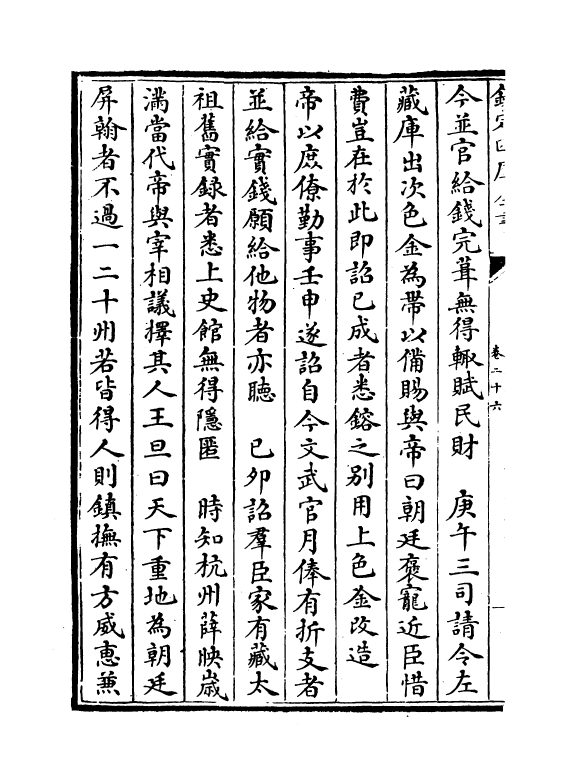 欽定四庫全書
卷二十六
今並官給錢完葺無得輙賦民財　庚午三司請令左
藏庫出次色金為帶以備賜與帝曰朝廷褒寵近臣惜
費豈在於此即詔已成者悉鎔之别用上色金改造
帝以庶僚勤事壬申遂詔自今文武官月俸有折支者
並給實錢願給他物者亦聽　己夘詔羣臣家有藏太
祖舊實録者悉上史館無得隱匿　時知杭州薛映歲
滿當代帝與宰相議擇其人王旦曰天下重地為朝廷
屏翰者不過一二十州若皆得人則鎮撫有方威恵兼